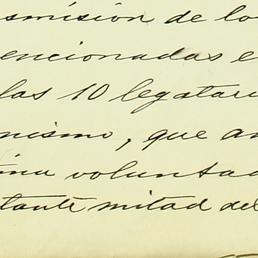 smisión de los
encionadas e
las 10 legatari
mismo, que an
tima voluntad
tante mitad del